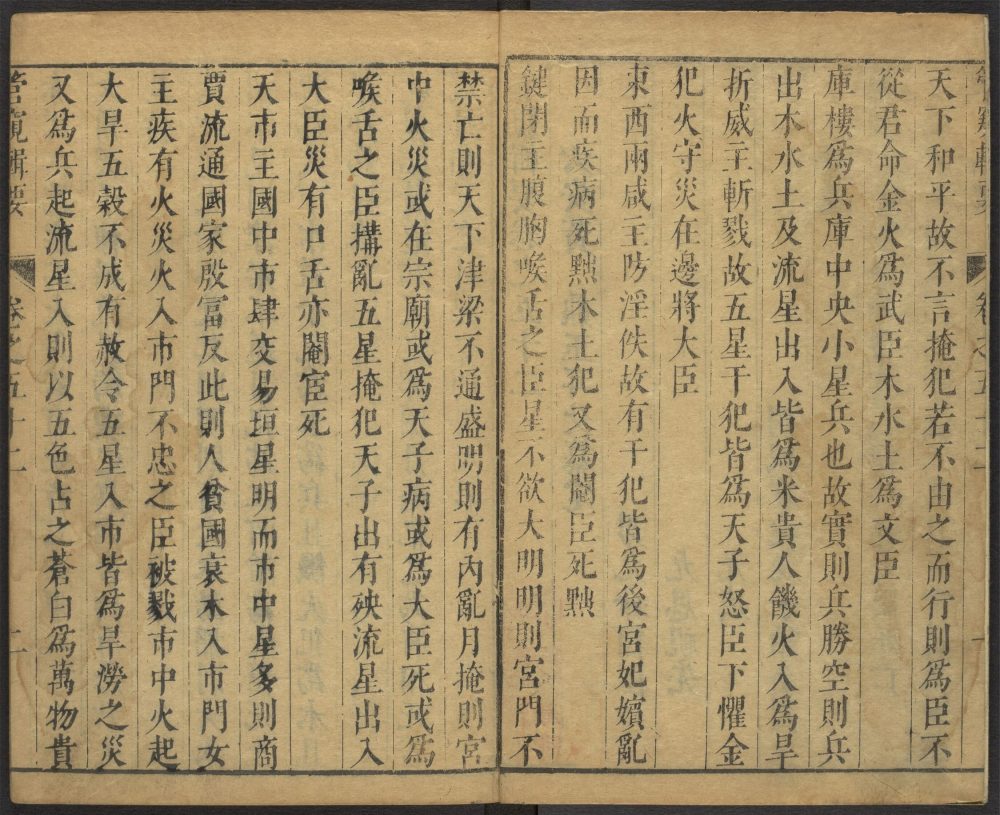 管窺輯要 卷之五十二 一
天下和平故不言掩犯若不由之而行則爲臣不
從君命金火爲武臣木水土爲文臣
庫樓爲兵庫中央小星兵也故實則兵勝空則兵
出木水土及流星出入皆爲米貴人饑火入爲旱
折威主斬戮故五星干犯皆爲天子怒臣下懼金
犯火守災在邊將大臣
東西兩咸主防淫佚故有干犯皆爲後宮妃嬪亂
因而疾病死黜木土犯又爲閹臣死黜
鍵閉主腹胸喉舌之臣星不欲大明明則宮門不
禁亡則天下津梁不通盛明則有內亂月掩則宮
中火災或在宗廟或爲天子病或爲大臣死或爲
喉舌之臣搆亂五星掩犯天子出有殃流星出入
大臣災有口舌亦閹宦死
天市主國中市肆交易垣星明而市中星多則商
賈流通國家殷富反此則人貧國衰木入市門女
主疾有火災火入市門不忠之臣被戮市中火起
大旱五穀不成有赦令五星入市皆爲旱澇之災
又爲兵起流星入則以五色占之蒼白爲萬物貴
管窺輯要 卷之五十二 二